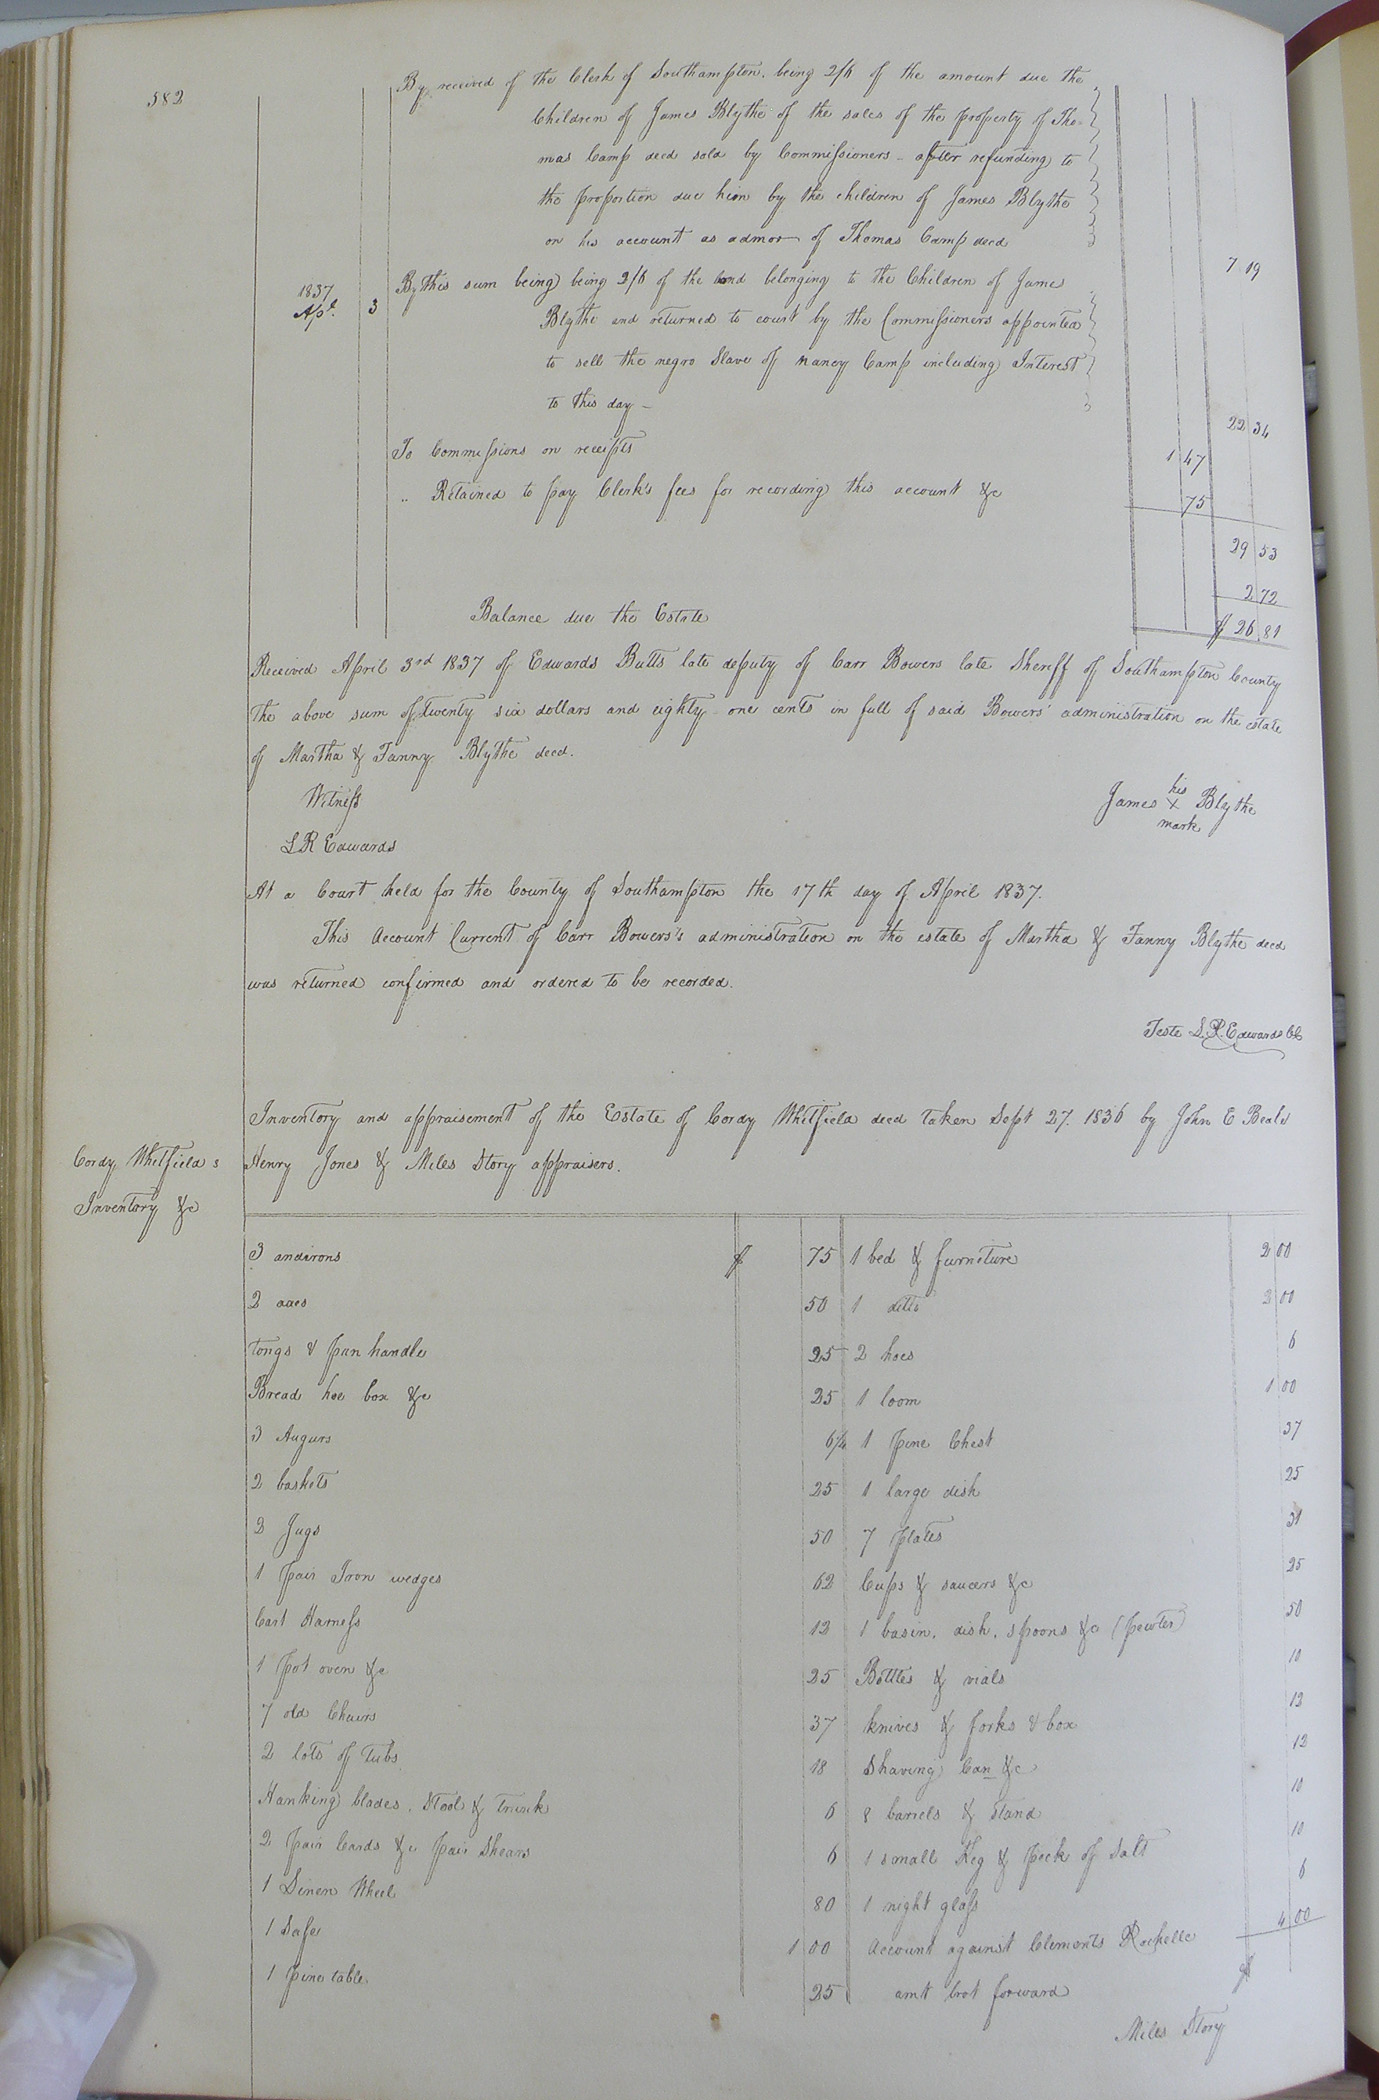 582
By received of the Clerk of Southampton, being 2/6 of the amount due the
Children of James Blythe of the sales of the property of Tho-
mas Camp decd sold by Commissioners - after refunding to
the proportion due him by the children of James Blythe
on his account as admor of Thomas Camp decd
7 19
1837
Apl. 3 By this sum being being 2/6 of the bond belonging to the Children of James
Blythe and returned to court by the Commissioners appointed
to sell the negro Slave of Nancy Camp including Interest
to this day -
22 34
To Commissions on receipts 1 47
" Retained to pay Clerk's fees for recording this account &c 75
29 53
2 72
Balance due the Estate $ 26 81
Received April 3rd 1837 of Edwards Butts late deputy of Carr Bowers late Sheriff of Southampton County
the above sum of twenty six dollars and eighty one cents in full of said Bowers' administration on the estate
of Martha & Fanny Blythe decd.
Witness
his
James x Blythe
mark
L R Edwards
At a Court held for the County of Southampton the 17th day of April 1837.
This Account Current of Carr Bowers's administration on the estate of Martha & Fanny Blythe decd
was returned confirmed and ordered to be recorded.
Teste L. R. Edwards Clk
Inventory and appraisement of the Estate of Cordy Whitfield decd taken Sept 27. 1836 by John E Beale
Cordy Whitfield s
Inventory &c
Henry Jones & Miles Story appraisers.
3 andirons $ 75 1 bed & furniture 2 00
2 axes 50 1 ditto 2 00
tongs & pan handle 25 2 hoes 6
Bread hoe box &c 25 1 loom 1 00
3 Augurs 6 1/4 1 Pine Chest 37
2 baskets 25 1 large dish 25
2 Jugs 50 7 plates 31
1 pair Iron wedges 62 Cups & saucers &c 25
Cart Harness 12 1 basin, dish, spoons &c (pewter) 50
1 pot oven &c 25 Bottles & vials 10
7 old Chairs 37 knives & forks & box 12
2 lots of tubs 18 Shaving Can &c 12
Hanking blades, Stool & trunk 6 8 barrels & stand 10
2 pair Cards &c pair Shears 6 1 small Keg & Peck of Salt 10
1 Linen Wheel 80 1 night glass 6
1 Safe 1 00 Account against Clements Rochelle 4 00
1 pine table 25 amt brot forward $
Miles Story